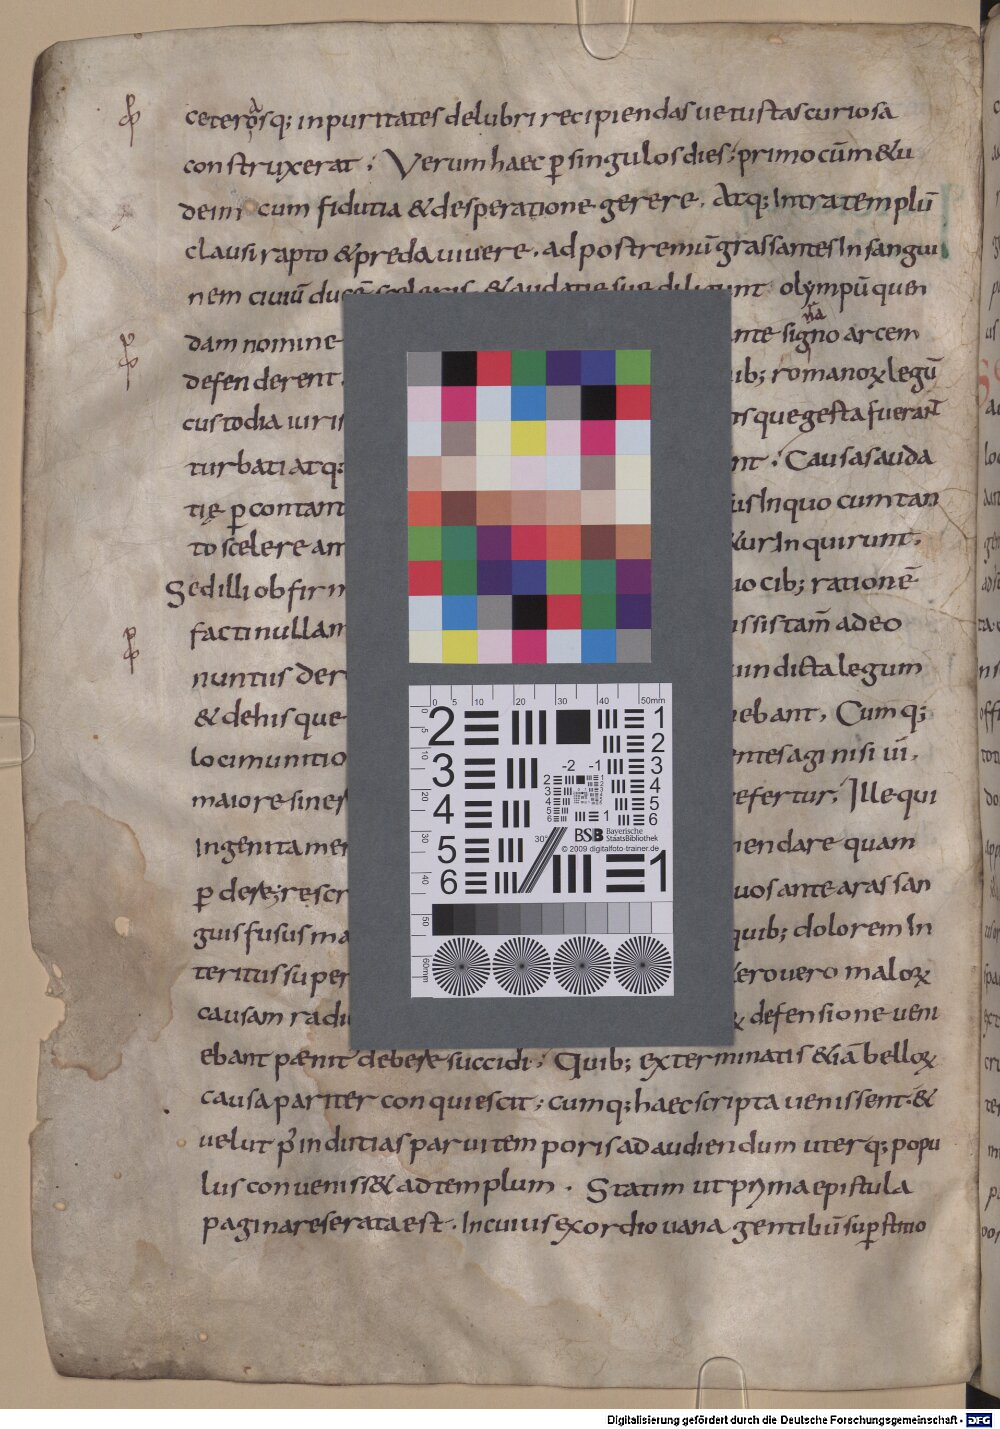 ceterosq; inpuritates delubri recipiendas uetustas curiosa
construxerat; Verum haec p̄ singulos dies; primo cūm &u
dein cum fidutia & desperatione gerere. Atq; Intra templū
clausi rapto & preda uiuere. ad postremū grassantes In sangui
nem ciuiū ducē sceleris & audatie sue diligunt olympū quen
dam nomine nte signo arcem
defenderent. ib; romanoꝝ legū
custodia uiris sque gesta fuerant
turbati atq; nt; Causas auda
tię p̄contant us In quo cum tan
to scelere am &ur Inquirunt.
Sed illi ob firm uocib; rationē
facti nullam issi s tam̄ adeo
nuntius der uindicta legum
& dehis que ebant, Cumq;
loci munitio entes agi nisi ui.
maiore sines refertur, Ille qui
Ingenita mer endare quam
p̄ dere; rescr uos ante aras san
guis fusus ma quib; dolorem In
teritus super ero uero maloꝝ
causam radi & defensione ueni
ebant pænit debere succidi; Quib; exterminatis & iā belloꝝ
causa pariter conquiescit; cumq; haec scripta uenissent. &
uelut p̄ indutias parui temporis ad audiendum uterq; popu
lus conueniss& ad templum. Statim ut pryma epistula
pagina reserata est. In cuius exordio uana gentibus superstitio
0 5 10 20 30 40 50mm
2 1
2
3 -2 -1 3
4 4
5 5
6 6
30°
BSB Bayerische StaatsBibliothek
© 2009 digitalfoto-trainer.de
1
60mm
Digitalisierung gefördert durch die Deutsche Forschungsgemeinschaft - DFG